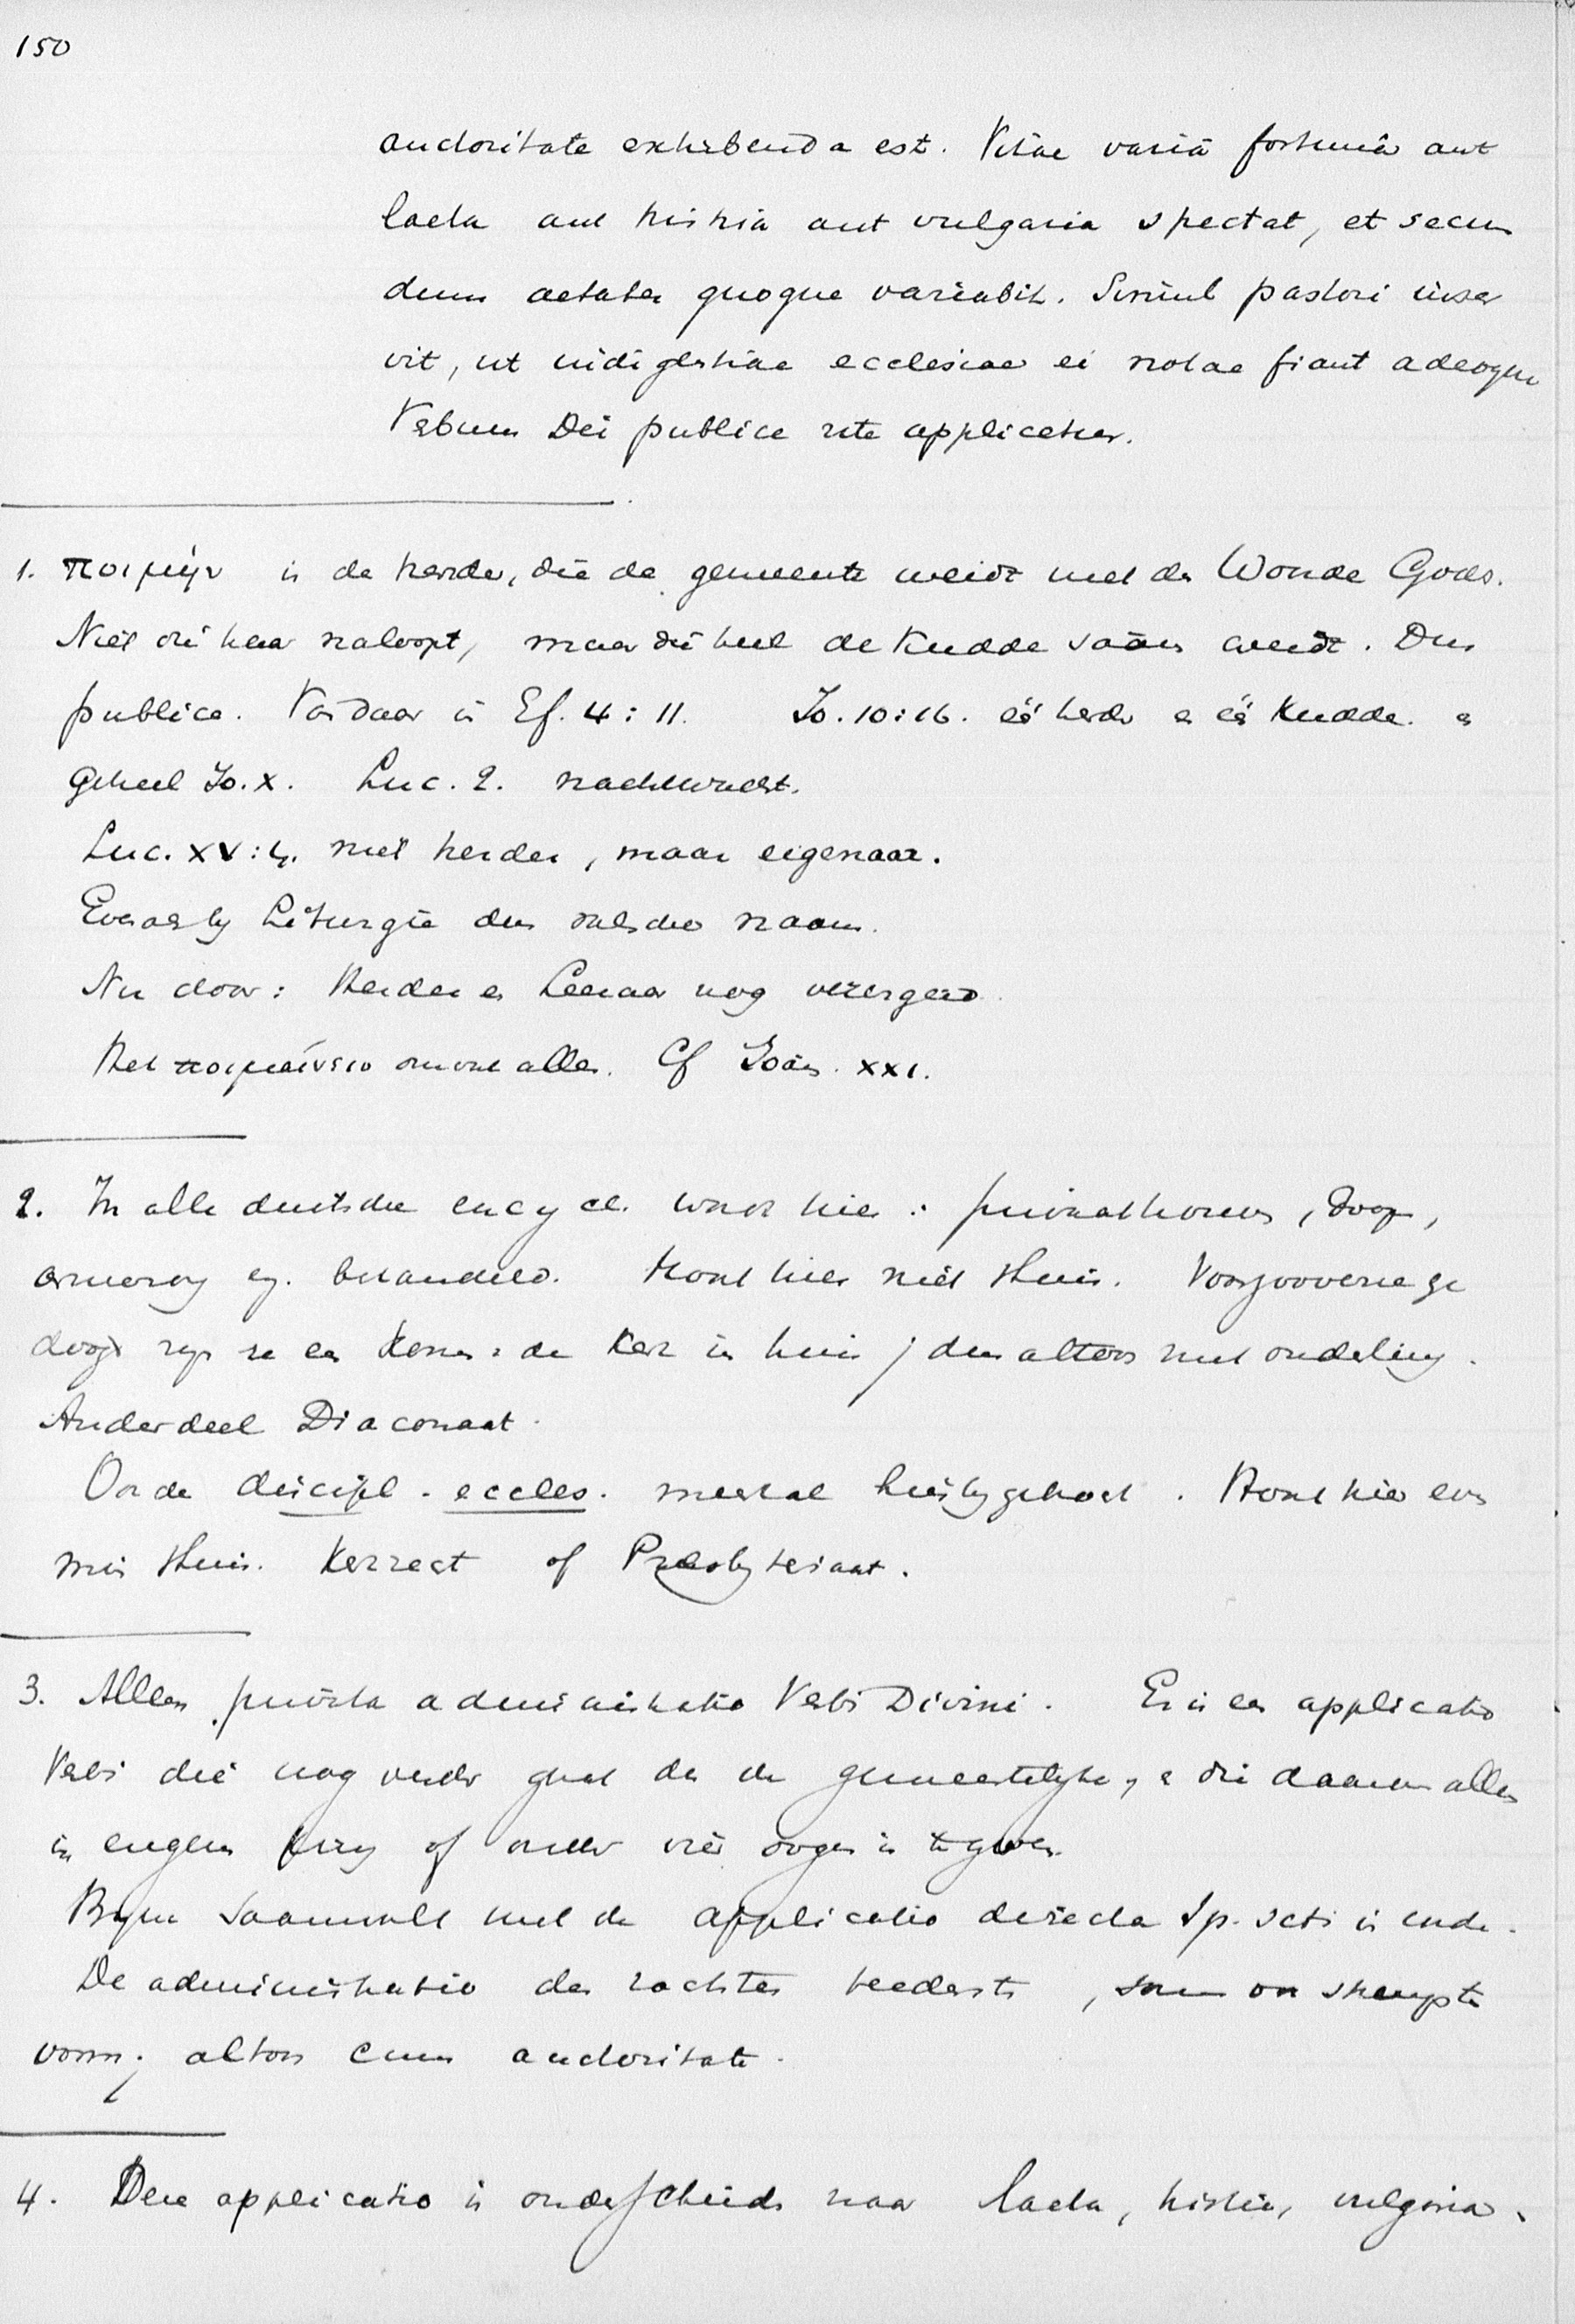 150
auctoritate exhibenda est. Vitae variâ fortunâ aut
laeta aut tristia aut vulgaria spectat, et secun
dum aetates quoque variabit. Simul pastori inser
vit, ut indigentiae ecclesiae ei notae fiant adeoque
Verbum Dei publice rite applicetur.
1. ποιμήν is de herder, die de gemeente weidt met den Woorde Gods.
Niet die haar naloopt, maar die heel de kudde saam weidt. Dus
publice. Vandaar in Ef. 4:11. Jo. 10:16. één herder en één kudde. en
geheel Jo. X. Luc. 2. nachtwacht.
Luc. XV:4. niet herder, maar eigenaar.
Evenals bij Liturgie dus valsche naam.
Nu door: Herder en Leeraar nog verergerd.
Het ποιμαίνειν omvat alles. Cf Joan. XXI.
2. In alle duitsche encycl. wordt hier: doop,
armenzorg enz. behandeld. Hoort hier niet thuis.
doop een de kerk in huis; dus altoos met ouderling.
Ander deel Diaconaat.
Ook de discipl. eccles. meestal hierbij gehaald. Hoort hier even
min thuis. Kerrect of Presbyteriaat.
3. Alleen privata administratio Verbi Divini. Er is een applicatio
Verbi die nog verder gaat dan de gemeentelijke, en die daarom alleen
in engeren kring of onder vier oogen is te geven.
saamvalt met de applicatio directa Sp. Scti in corde.
De administratio der zachter teederste, soms on
vorm; altoos cum auctoritate.
4. Deze applicatio is onderscheiden naar laeta, tristia, vulgaria.